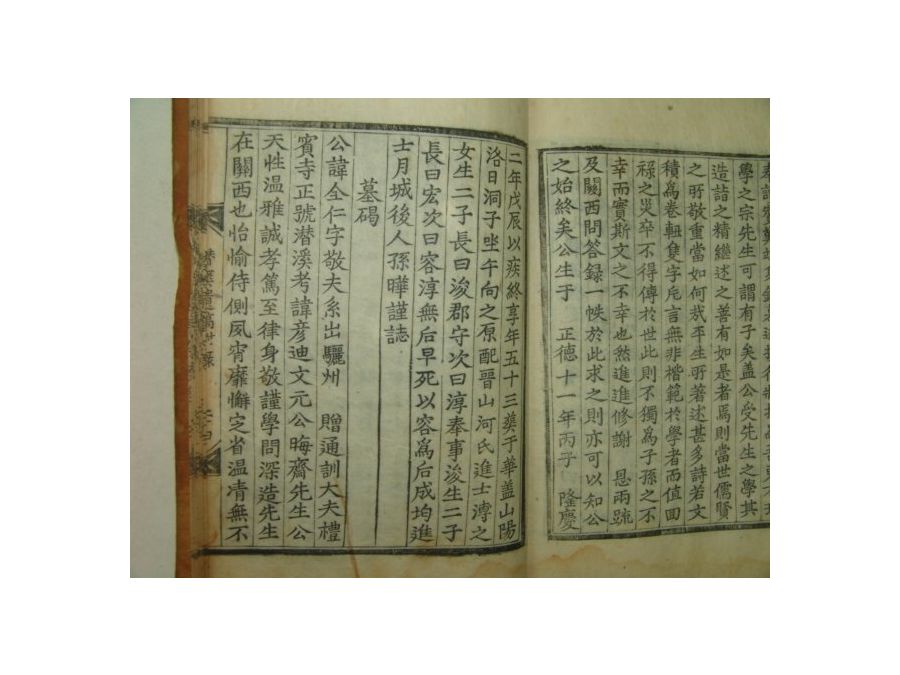 學之宗先生可謂有子矣盖公受先生之學其
造詣之精繼述之善有如是者焉則當世儒賢
之所敬重當如何㦲平生所著述甚多詩若文
積爲卷軸隻字片言無非楷範於學者而値回
祿之灾卒不得傳於世此則不獨爲子孫之不
幸而實斯文之不幸也然進進修謝 恩雨䟽
及關西問答録一帙於此求之則亦可以知公
之始終矣公生于 正德十一年丙子 隆慶
二年戊辰以疾終享年五十三葬于華盖山陽
洛日洞子坐午向之原配晉山河氏進士溥之
女生二子長曰浚郡守次曰淳奉事浚生二子
長曰宏次曰容淳無后早死以容爲后成均進
士月城後人孫曄謹誌
墓碣
公諱全仁字敬夫系出驪州 贈通訓大夫禮
賓寺正號潜溪考諱彦迪文元公晦齋先生公
天性温雅誠孝篤至律身敬謹學問深造先生
在關西也怡愉侍側夙宵靡懈定省温凊無不